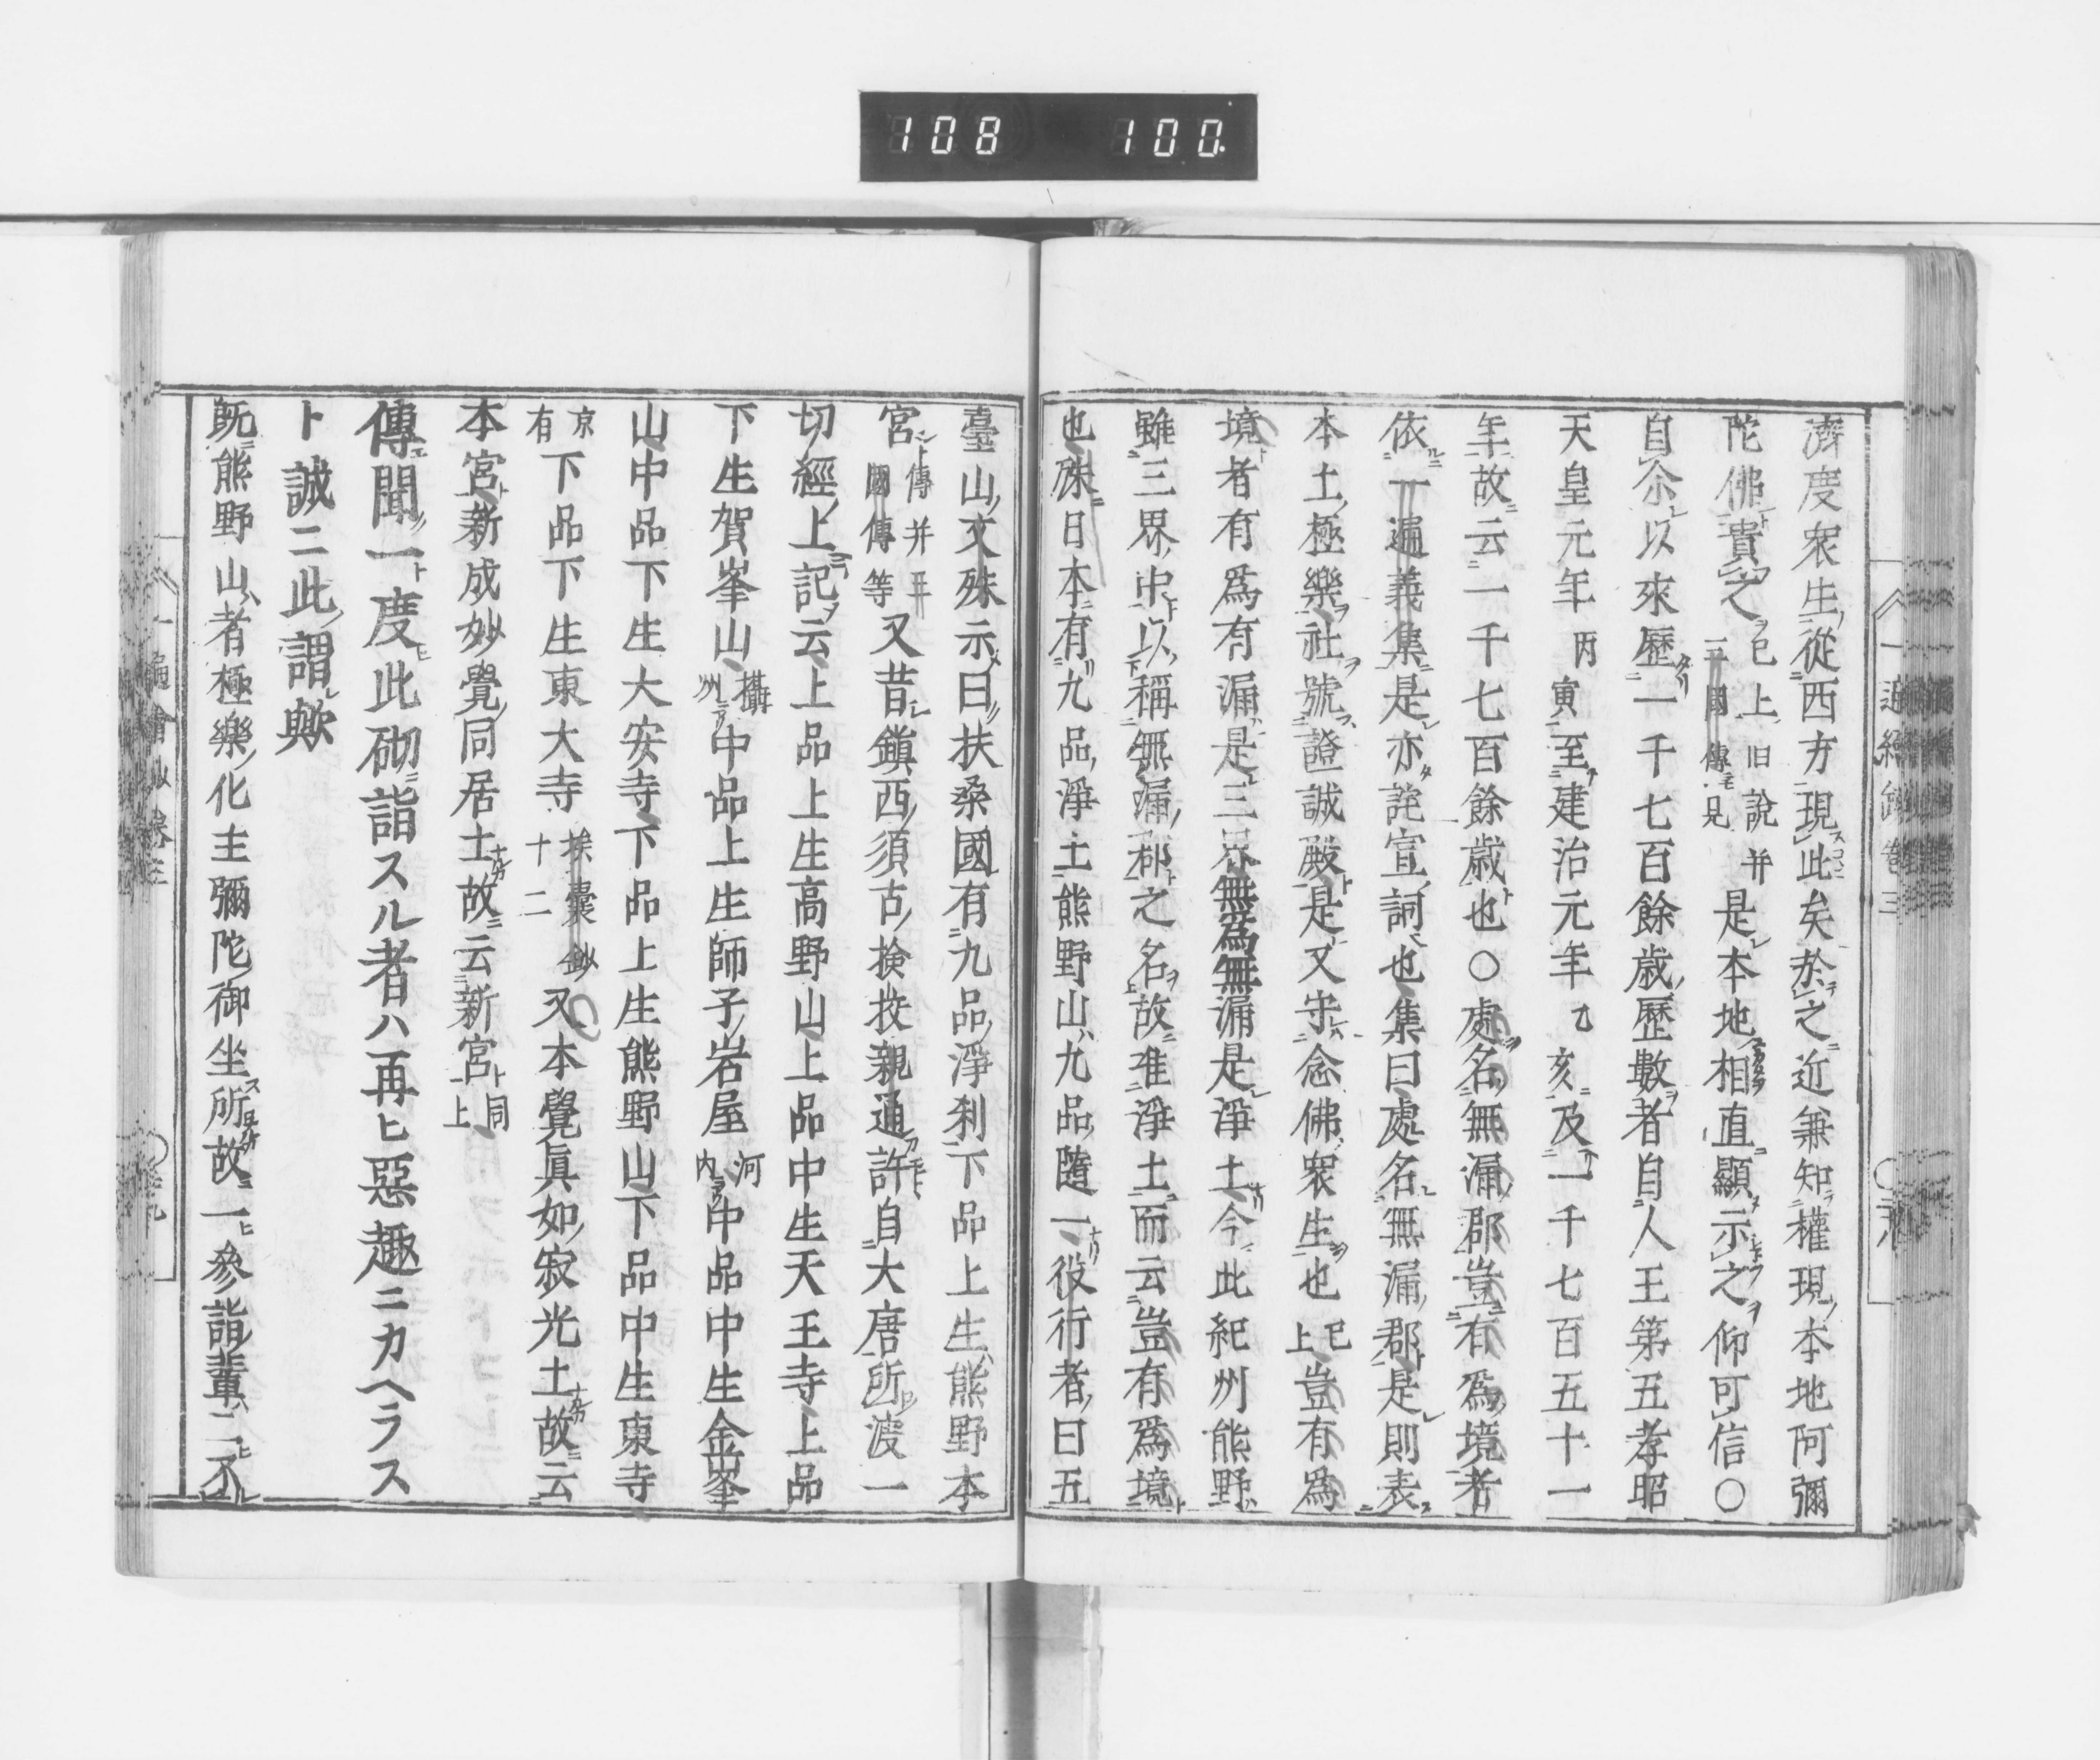 108 100
濟度衆生從西方現此矣於之近兼知權現本地阿彌
陀佛貴之已上旧說并三國傳見是本地相直顯示之仰可信〇
自尒以來歷一千七百餘歲歷數者自人王第五孝昭
天皇元年丙寅至建治元年乙亥及一千七百五十一
年故云一千七百餘歲也〇處名無漏郡豈有爲境者
依一遍義集是亦詫宣詞也集曰處名無漏郡是則表
本土極樂社號證誠殿是又守念佛衆生也已上豈有爲
境者有爲有漏是三界無爲無漏是淨土今此紀州熊野
雖三界中以稱無漏郡之名故准淨土而云豈有爲境
也殊日本有九品淨土熊野山九品隨一役行者曰五
臺山文殊示曰扶桑國有九品淨刹下品上生熊野本
宮傳并平國傳等又昔鎭西須古檢挍親通許自大唐所渡一
切經上記云上品上生高野山上品中生天王寺上品
下生賀峯山攝州中品上生師子岩屋河内中品中生金峯
山中品下生大安寺下品上生熊野山下品中生東寺
京有下品下生東大寺挨囊鈔十二又本覺眞如寂光土故云
本宮新成妙覺同居土故云新宮同上
傳聞一度此砌詣スル者ハ再ヒ惡趣ニカヘラス
ト誠二此謂歟
既熊野山者極樂化主彌陀御坐所故一參詣輩二不
一遍繪鈔卷三